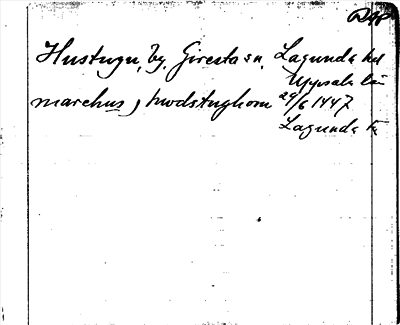 Hustugu, by, Giresta sn, Lagunda hd
Uppsala län
marchus j hwdstughom 29/6 1447
Lagunda